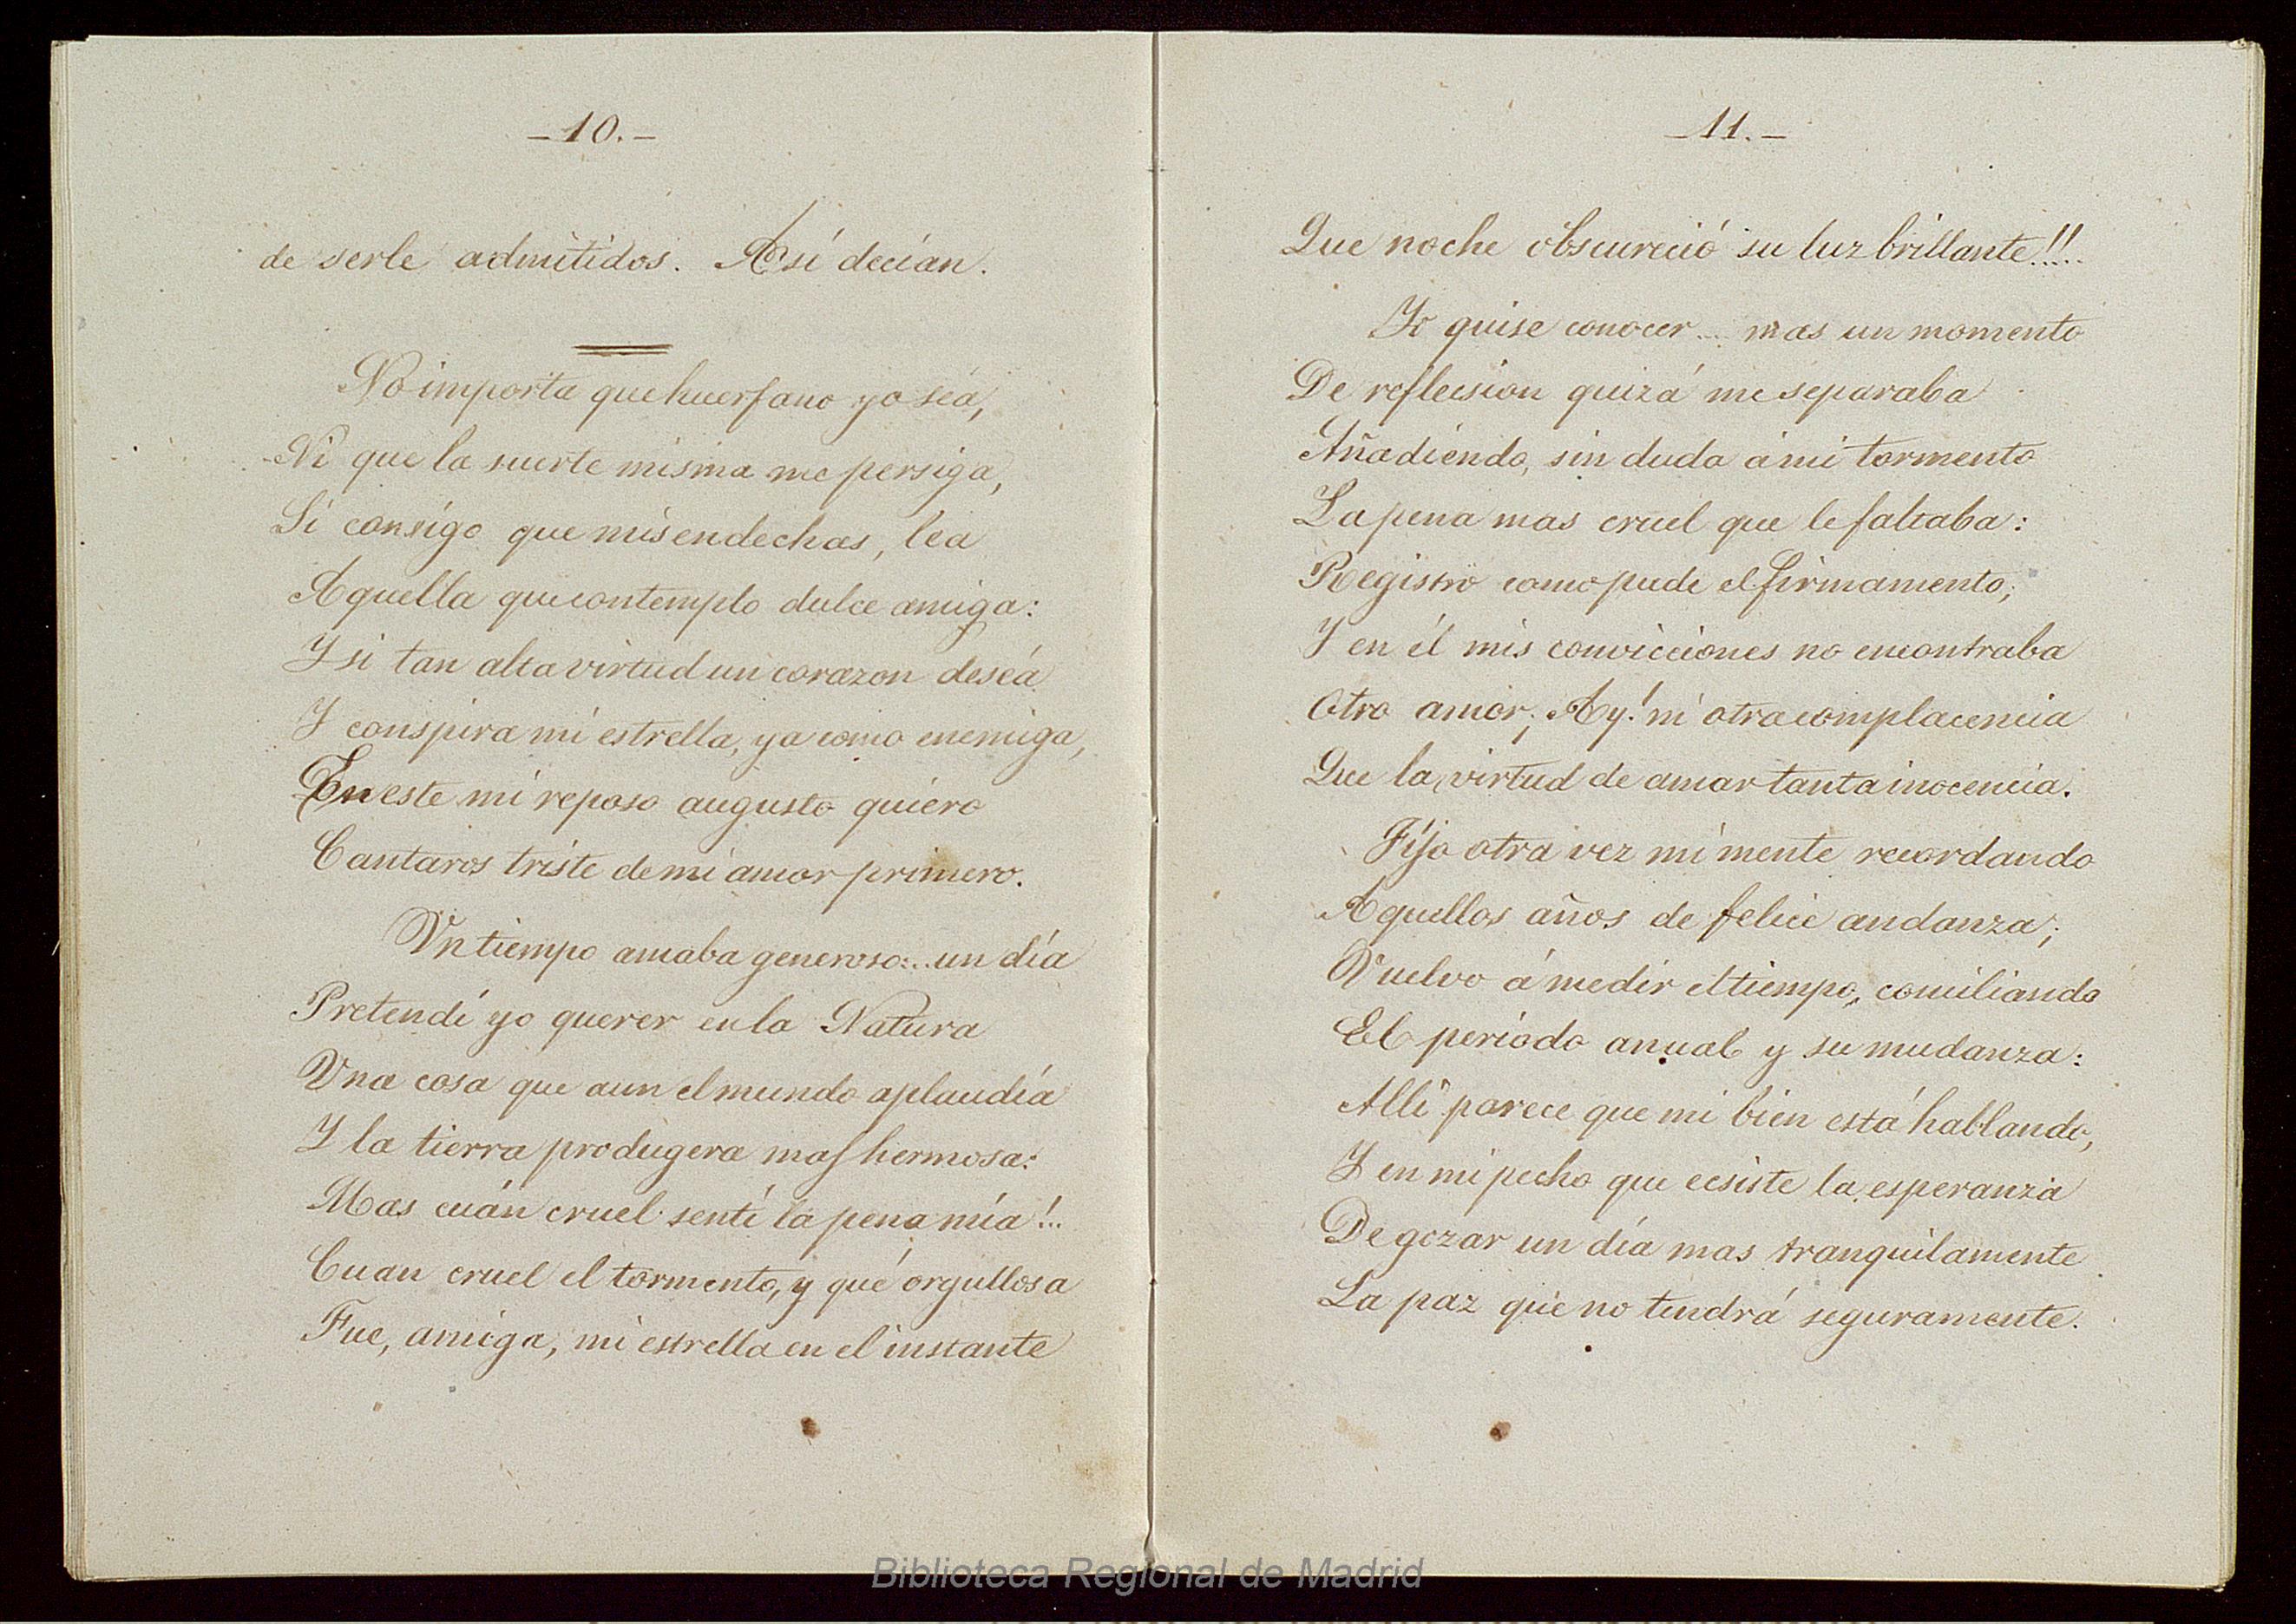 —10.—
de serle admitidos. Así decían.
No importa que huerfano yo séa,
Ni que la suerte misma me persiga,
Si consigo que mis endechas, léa
Aquella que contemplo dulce amiga:
Y si tan alta virtud un corazon deséa
Y conspira mi estrella, ya como enemiga,
En este mi reposo augusto quiero
Cantaros triste de mi amor primero.
Un tiempo amaba generoso:... un día
Pretendí yo querer en la Natura
Una cosa que aun el mundo aplaudía
Y la tierra produgera mas hermosa:
Mas cuán cruel sentí la pena mía!...
Cuan cruel el tormento, y qué orgullosa
Fue, amiga, mi estrella en el instante
—11.—
Que noche obscureció su luz brillante!!!..
Yo quise conocer.... mas un momento
De reflecsion quizá me separaba
Añadiendo, sin duda á mi tormento
La pena mas cruel que le faltaba:
Registro como pude el firmamento;
Y en él mis convicciones no encontraba
Otro amor; Ay! ni otra complacencia
Que la virtud de amar tanta inocencia.
Fijo otra vez mi mente recordando
Aquellos años de felice andanza;
Vuelvo á medir el tiempo, conciliando
El período anual y su mudanza:
Allí parece que mi bien está hablando,
Y en mi pecho que ecsiste la esperanza
De gozar un día mas tranquilamente
La paz que no tendrá seguramente.
Biblioteca Regional de Madrid